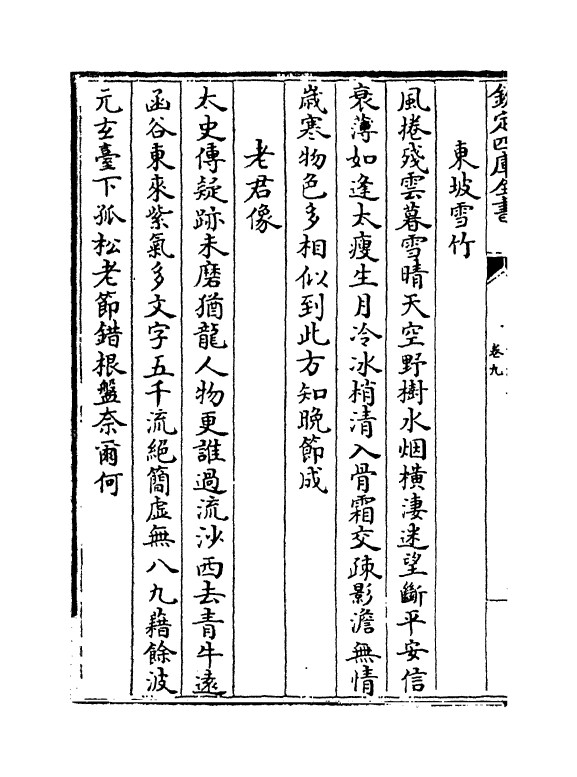 欽定四庫全書
卷九
東坡雪竹
風捲殘雲暮雪晴天空野樹水烟橫淒迷望斷平安信
衰薄如逢太瘦生月冷冰梢清入骨霜交疎影澹無情
歳寒物色多相似到此方知晚節成
老君像
太史傳疑跡未磨猶龍人物更誰過流沙西去青牛遠
函谷東來紫氣多文字五千流絕簡虛無八九藉餘波
元玄臺下孤松老節錯根盤奈爾何